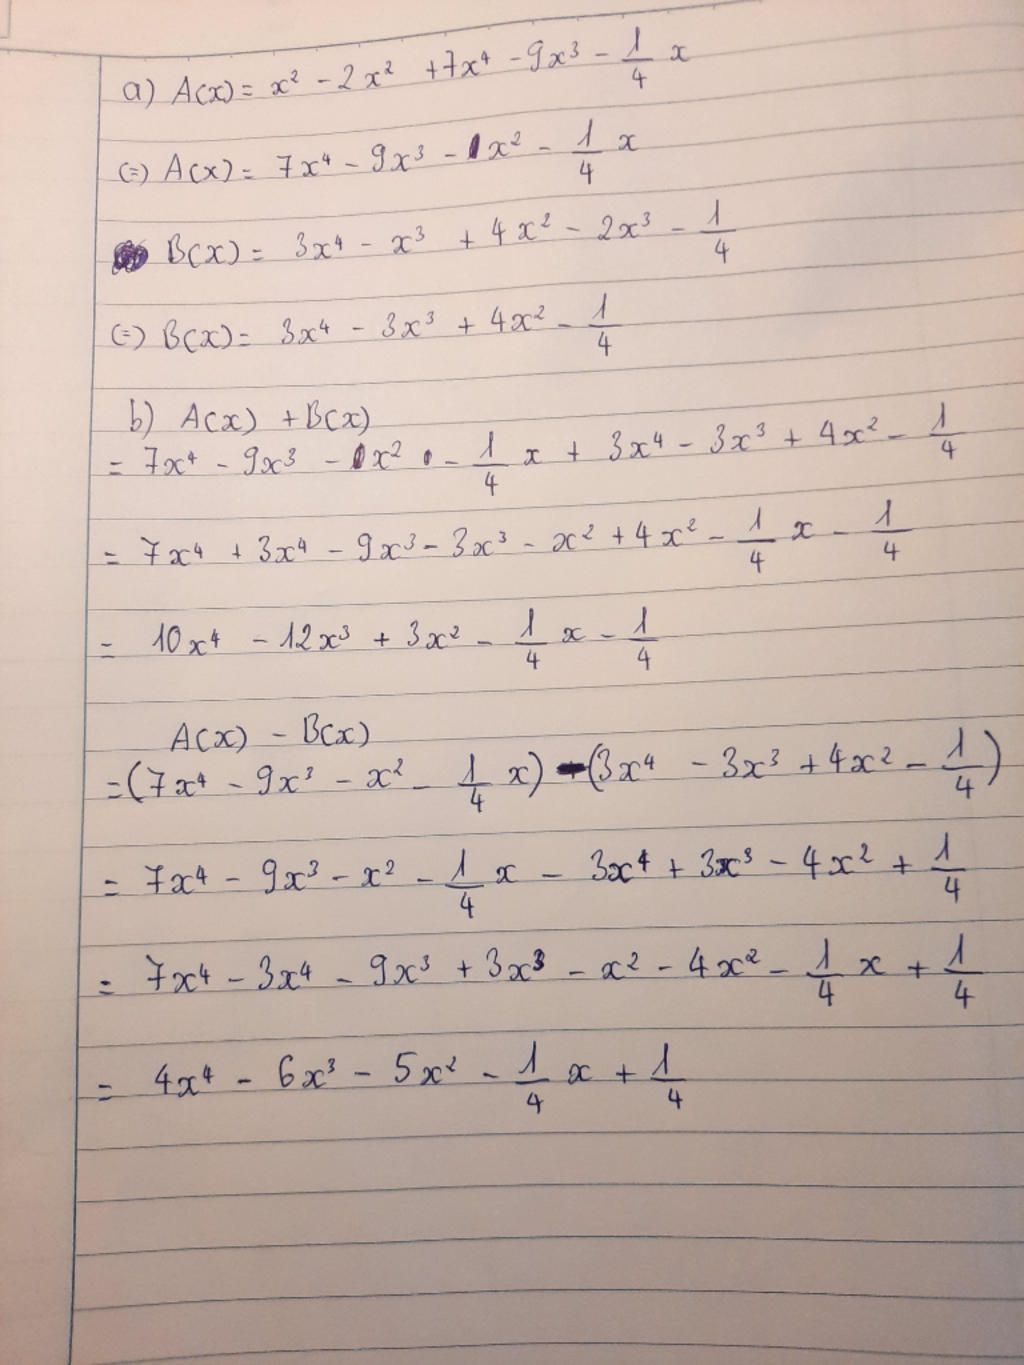 a) A(x) = x² - 2x² + 7x⁴ - 9x³ - 1/4 x
(=) A(x) = 7x⁴ - 9x³ - 1x² - 1/4 x
B(x) = 3x⁴ - x³ + 4x² - 2x³ - 1/4
(=) B(x) = 3x⁴ - 3x³ + 4x² - 1/4
b) A(x) + B(x)
= 7x⁴ - 9x³ - 1x² - 1/4 x + 3x⁴ - 3x³ + 4x² - 1/4
= 7x⁴ + 3x⁴ - 9x³ - 3x³ - x² + 4x² - 1/4 x - 1/4
= 10x⁴ - 12x³ + 3x² - 1/4 x - 1/4
A(x) - B(x)
= (7x⁴ - 9x³ - x² - 1/4 x) - (3x⁴ - 3x³ + 4x² - 1/4)
= 7x⁴ - 9x³ - x² - 1/4 x - 3x⁴ + 3x³ - 4x² + 1/4
= 7x⁴ - 3x⁴ - 9x³ + 3x³ - x² - 4x² - 1/4 x + 1/4
= 4x⁴ - 6x³ - 5x² - 1/4 x + 1/4